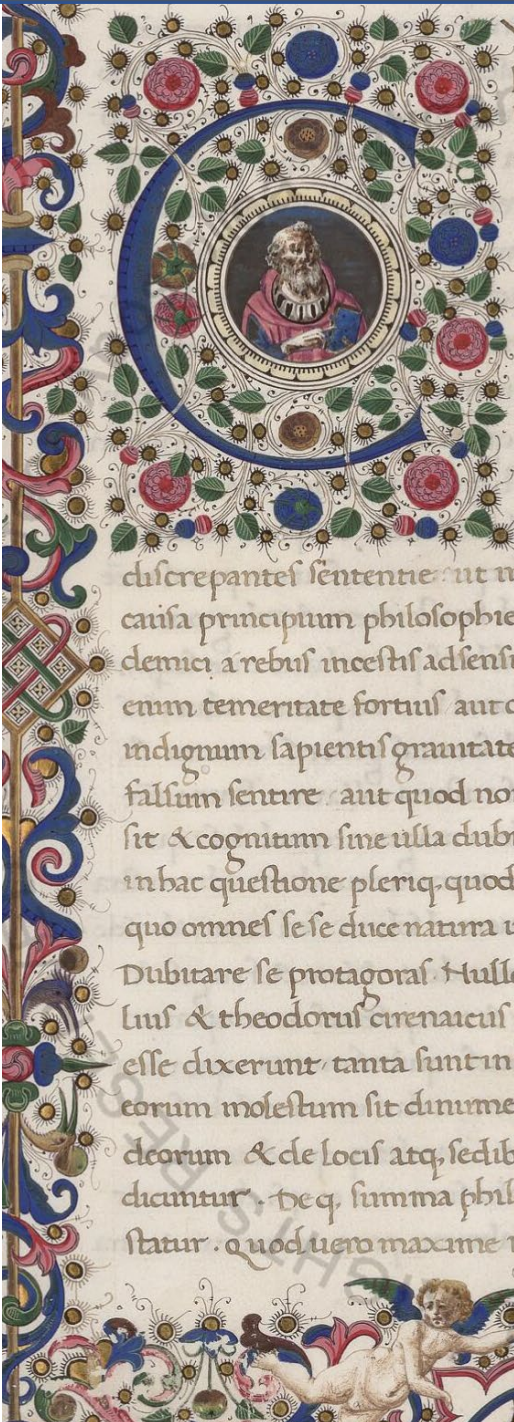 C
discrepantes sententie ut m
causa principium philosophie
demici a rebus incestis adsensi
enim temeritate fortius aut
indignum sapientis grauitate
falsum sentire aut quod no
sit & cognitum sine ulla dubi
in hac questione pleriq. quod
quo omnes se se duce natura
Dubitare se protagoras. Null
lius & theodorus cirenaicus
esse dixerunt tanta sunt in
eorum molestum sit dinume
deorum & de locis atq, sedib
dicuntur. De q, summa phil
statur. quod uero maxime